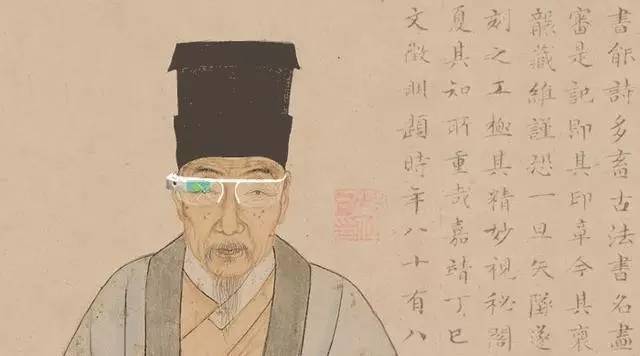 書能詩多畜古法書名畫
審是記即其印章今其裒
龍藏維謹恐一旦失墜遂
刻之工極其精妙視秘閣
夏其知所重哉嘉靖丁巳
文徵明題時年八十有八